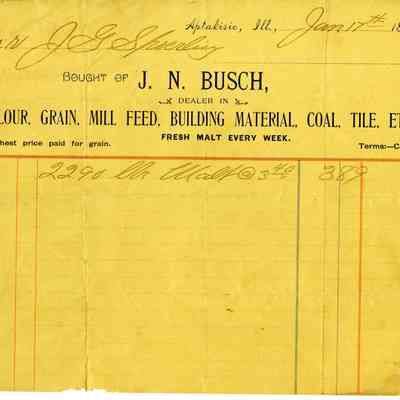 Aptakisic, Ill., Jan 17th 18
J G
BOUGHT OF J. N. BUSCH,
DEALER IN
LOUR, GRAIN, MILL FEED, BUILDING MATERIAL, COAL, TILE, ET
FRESH MALT EVERY WEEK.
hest price paid for grain. Terms:—C
2290 lbs Malt @ 3 40/c 389